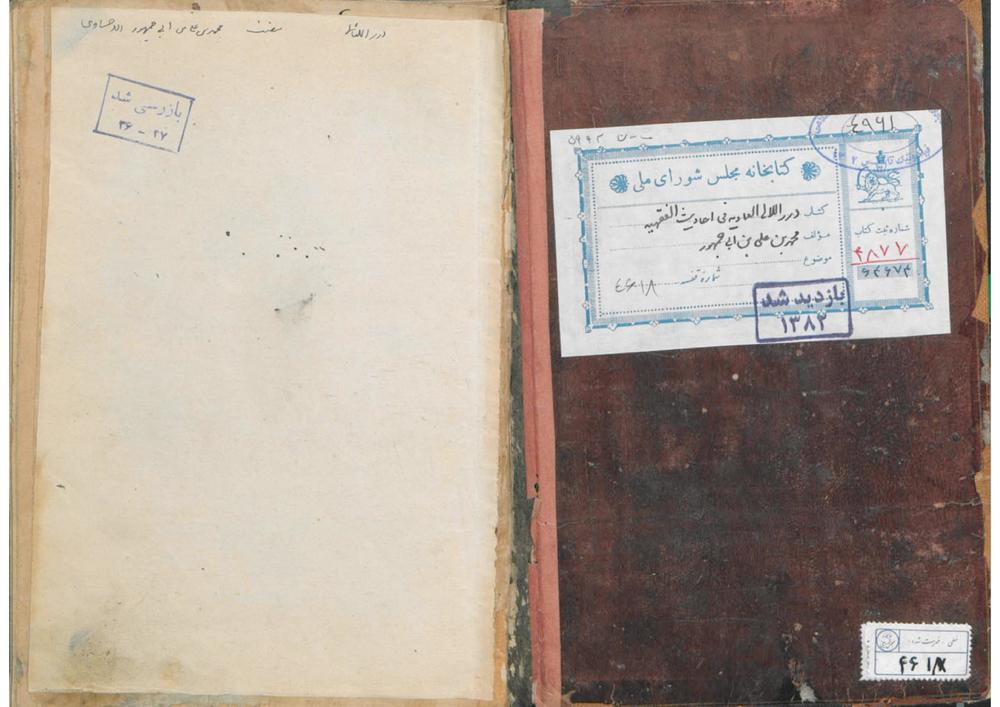 درر اللئالی مصنف محمد بن علی بن ابی جمهور الاحساوی
بازرسی شد
۳۶ - ۳۷
کتابخانه مجلس شورای ملی
کتاب درر اللالی العمادیه فی احادیث الفقهیه
مؤلف محمد بن علی بن ابی جمهور
موضوع
شماره قفسه ٤٦١٨
٤٩٦١
شماره ثبت کتاب
۴۸۷۷
۶۴۶۷۴
بازدید شد
۱۳۸۲
خطی - فهرست شده
۴۶۱۸